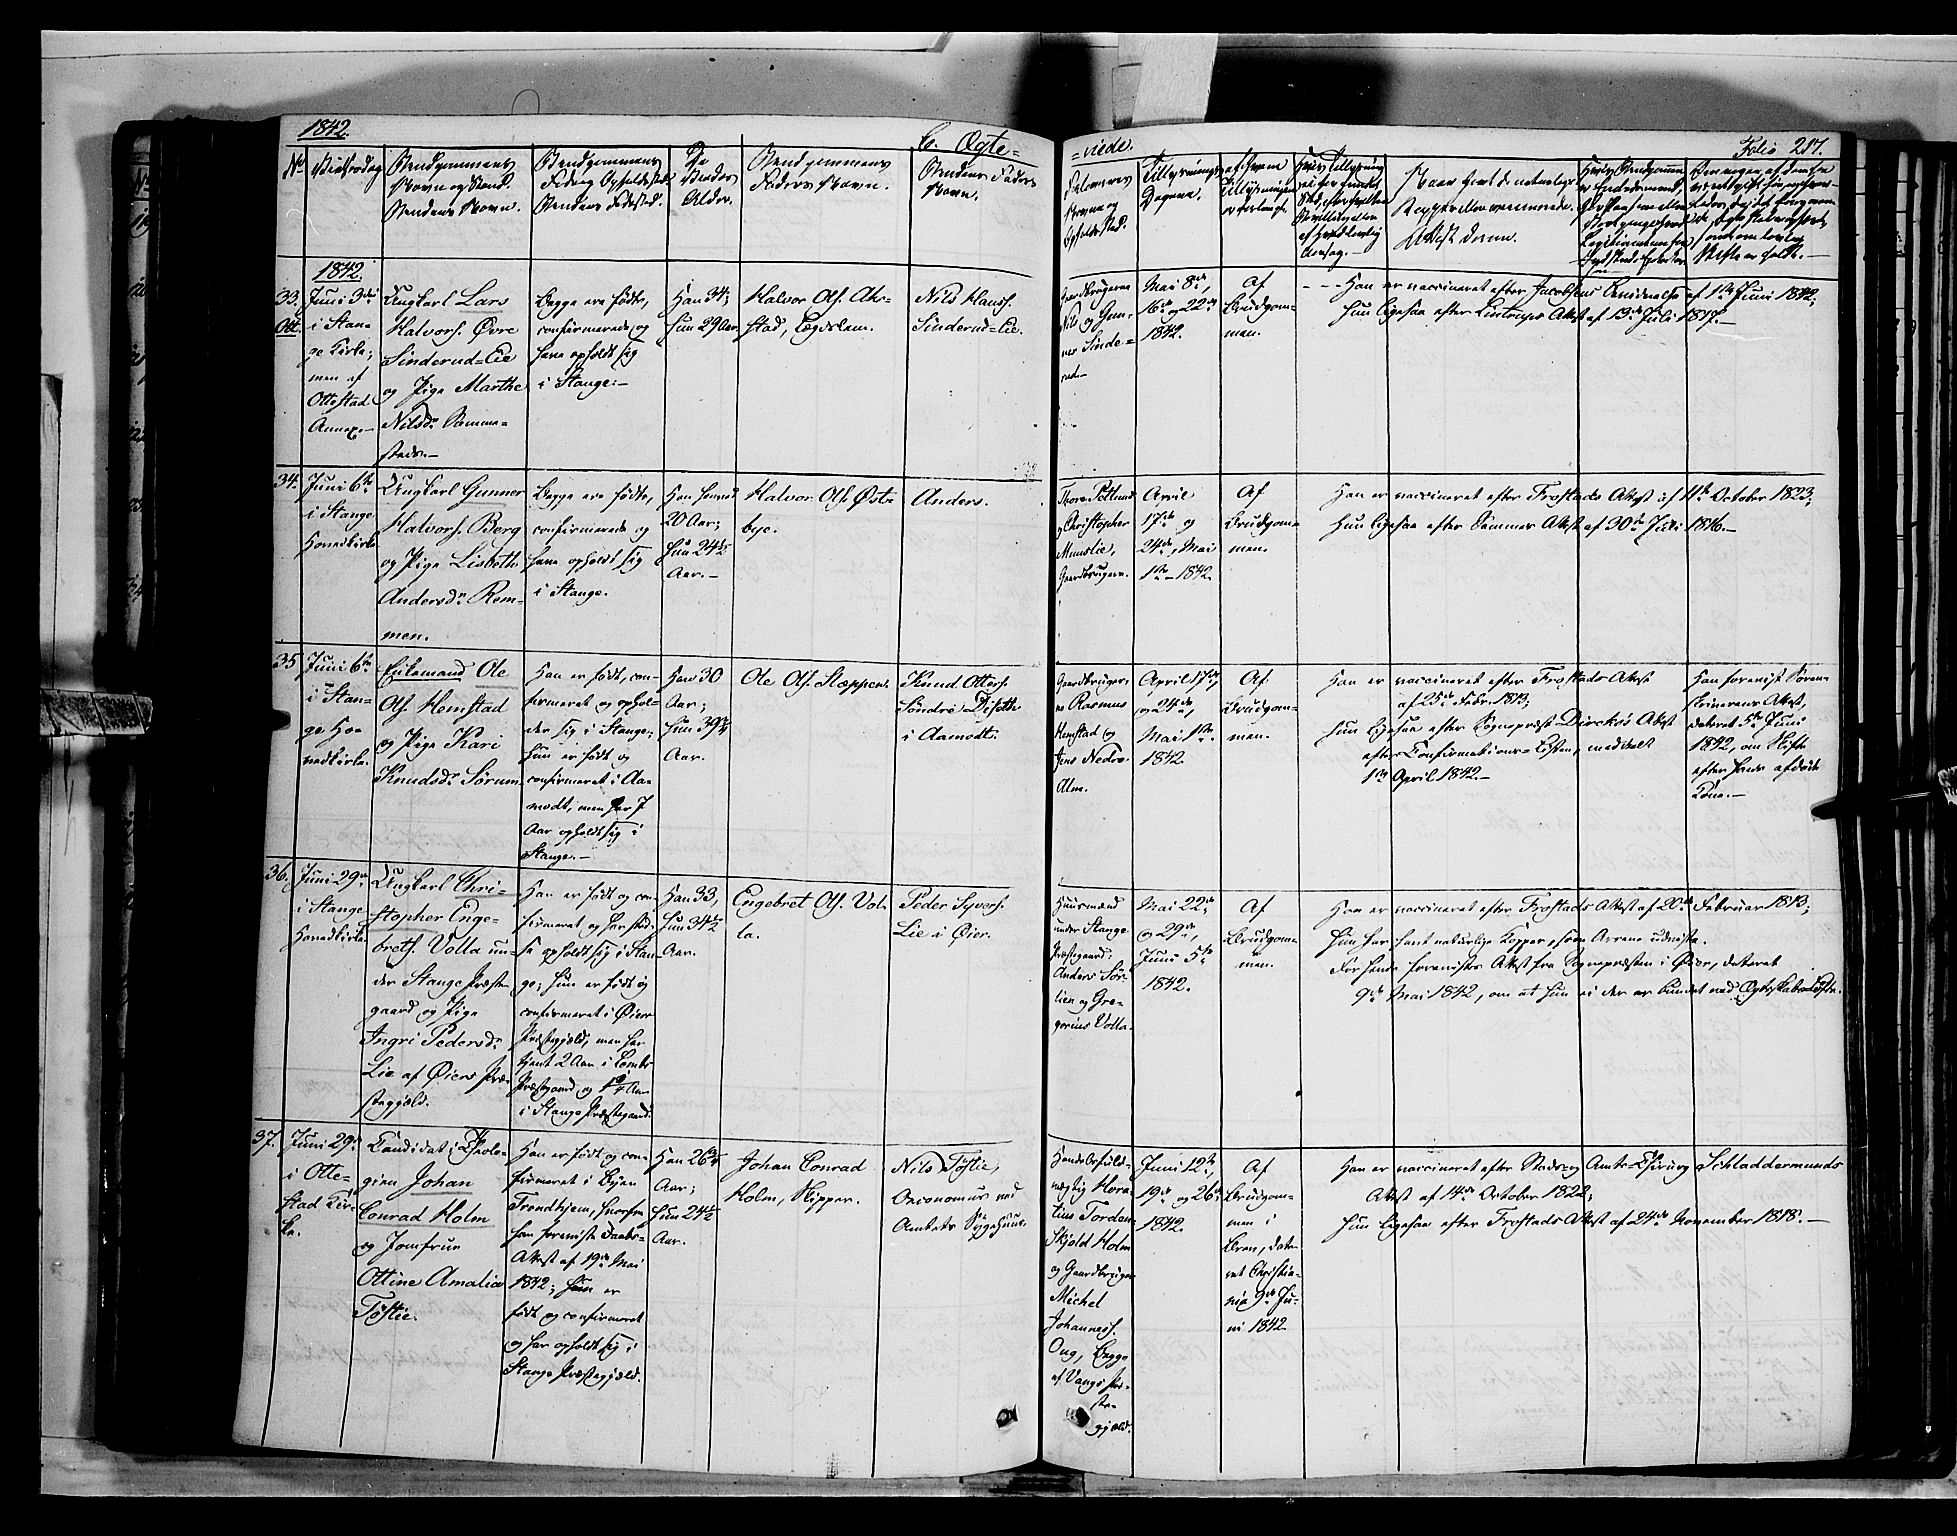 1842.
C. Ægte=
=viede.
Folio 217.
No
Vielsesdag
Brudgommens
Navn og Stand.
Brudens Navn.
Brudgommens
Fødested, Opholdssted.
Brudens Fødested.
De
Viedes
Alder.
Brudgommens
Faders Navn.
Brudens Faders
Navn.
Forlovernes
Navne og
Opholdssted.
Tillysnings
Dagene.
af hvem
Tillysningen
er forlangt.
Naar havt de naturlige
Kopper eller vaccinerede.
Attest derom.
1842.
33.
Ott.
Juni 3die
i Stan-
ge Kirke;
men af
Ottestad
Annex.-
Ungkarl Lars
Halvors. Øvre
Sinderud=Eie
og Pige Marthe
Nilsdr.
Begge ere fødte,
confirmerede og
have opholdt sig
i Stange.-
Han 34;
hun 29 Aar.
Halvor Ols. Ak-
stad, Lægdslem.
Nils Hanss.
Sinderud=Eie.
Gaardbrugerne
Nils og Gun-
ner Sinde=
rud.-
Mai 8de,
16de og 22de
1842.
Af
Brudgom-
men.
Han er vaccineret efter Jacobsens Attest af 1ste Juni 1842;
hun ligesaa efter Lintrups Attest af 13de Juli 1817.-
34.
Juni 6te
i Stange
Hovedkirke
Ungkarl Gunner
Halvors. Berg
og Pige Lisbeth
Andersdr. Rem-
men.
Begge ere fødte,
confirmerede og
have opholdt sig
i Stange.
20 Aar;
hun 24½
Aar.-
Halvor Ols. Øst-
bye.
Anders.
og Christopher
Gaardbrugere.
April
17de og
24de, Mai
1ste 1842.
Af
Brudgom-
men.
Han er vaccineret efter Frostads Attest af 11te October 1823;
hun ligesaa efter Sammes Attest af 30te Juli 1816.-
35
Juni 6te
i Stan-
ge Ho-
vedkirke.
Enkemand Ole
Ols. Hemstad
og Pige Kari
Knudsdr. Sørum
Han er født, con-
firmeret og ophol-
der sig i Stange;
hun er født og
confirmeret i Aa-
modt, men har 7
Aar opholdt sig i
Stange.-
Han 30
Aar;
hun 39¾
Aar.
Ole Ols. Stæppen.
Knud Otters.
Søndre Diseth
i Aamodt.
Gaardbruger-
ne Rasmus
Hemstad og
Jens Nedre
Alm.
April 17de,
og 24de,
Mai 1ste
1842.
Af
Brudgom-
men.
Han er vaccineret efter Frostads Attest
af 25de Febr. 1813;
hun ligesaa efter Sognepræst Dircks's Attest
efter Confirmations=Listen, meddelt
1ste April 1842.-
Han foreviste Soren-
skriverens Attest,
dateret 5te Juni
1842, om Skifte
efter hans afdøde
Kone.-
36.
Juni 29de
i Stange
Hovedkirke
Ungkarl Chri-
stopher Enge-
brets. Volla un-
der Stange Præste-
gaard og Pige
Ingri Pedersdr.
Lie af Øiers Præ-
stegjæld.
Han er født og con-
firmeret og har sted-
se opholdt sig i Stan-
ge; hun er født og
confirmeret i Øiers
Præstegjæld, men har
tjent 2 Aar i Lombs
Præstegaard og 1¾ Aar
i Stange Præstegaard.
Han 33,
hun 34½
Aar.
Engebret Ols. Vol-
la.
Peder Syvers.
Lie i Øier.
Huusmænd
under Stange
Præstegaard:
Anders Sør-
lien og Gre-
gorius Volla.
Mai 22de
og 29de,
Juni 5te
1842.
Af
Brudgom-
men.
Han er vaccineret efter Frostads Attest af 20de Februar 1813;
hun har havt naturlige Kopper, som Arrene udviste.
For hende forevistes Attest fra Sognepræsten i Øier, dateret
9de Mai 1842, om at hun ei der er bunden ved Ægteskabs-Løfte.
37.
Juni 29de
i Otte-
stad Kir-
ke.
Candidat i Theolo-
gien Johan
Conrad Holm
og Jomfrue
Ottine Amalia
Tøstie.
Han er født og con-
firmeret i Byen
Trondhjem, hvorfra
han foreviste Daabs-
Attest af 19de Mai
1842; hun er
født og confirmeret
og har opholdt sig i
Stange Præstegjæld.
Han 26¾
Aar;
hun 24½
Aar.
Johan Conrad
Holm, Skipper.
Nils Tøstie,
Oeconomus ved
Amtets Sygehuus.
Handelsfuld-
mægtig Hora-
tius Torden-
skjold Holm
og Gaardbruger
Michel
Johanness.
Ong, begge
af Vangs Præ-
ste-
gjæld.
Juni 12te,
19de og 26de
1842.
Af
Brudgom-
men i
Brev, date-
ret Christia-
nia 9de Ju-
ni 1842.
Han er vaccineret efter Stads- og Amts-Chirurg Schladdermunds
Attest af 14de October 1822;
hun ligesaa efter Frostads Attest af 24de November 1818.-